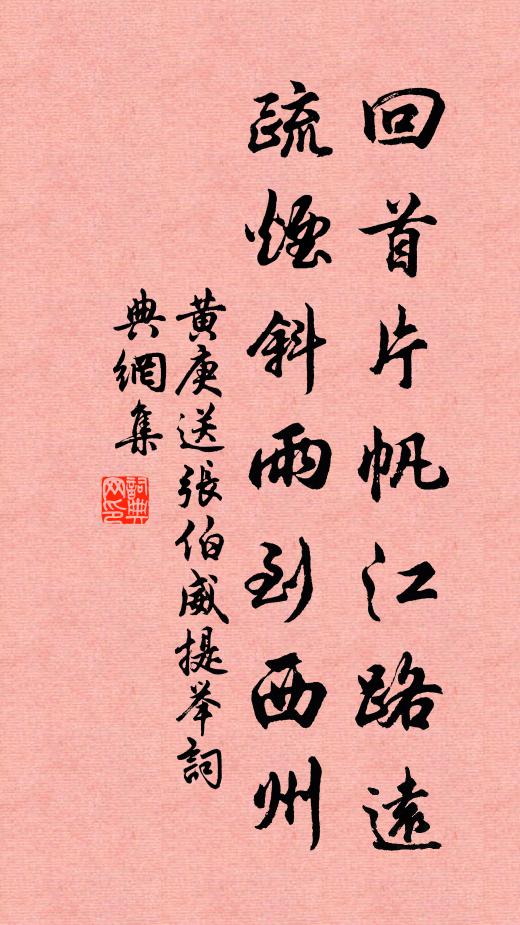 回首片帆江路遠
疏煙斜雨到西州
黄庚送張伯威提举詞
典網集
詞典网印